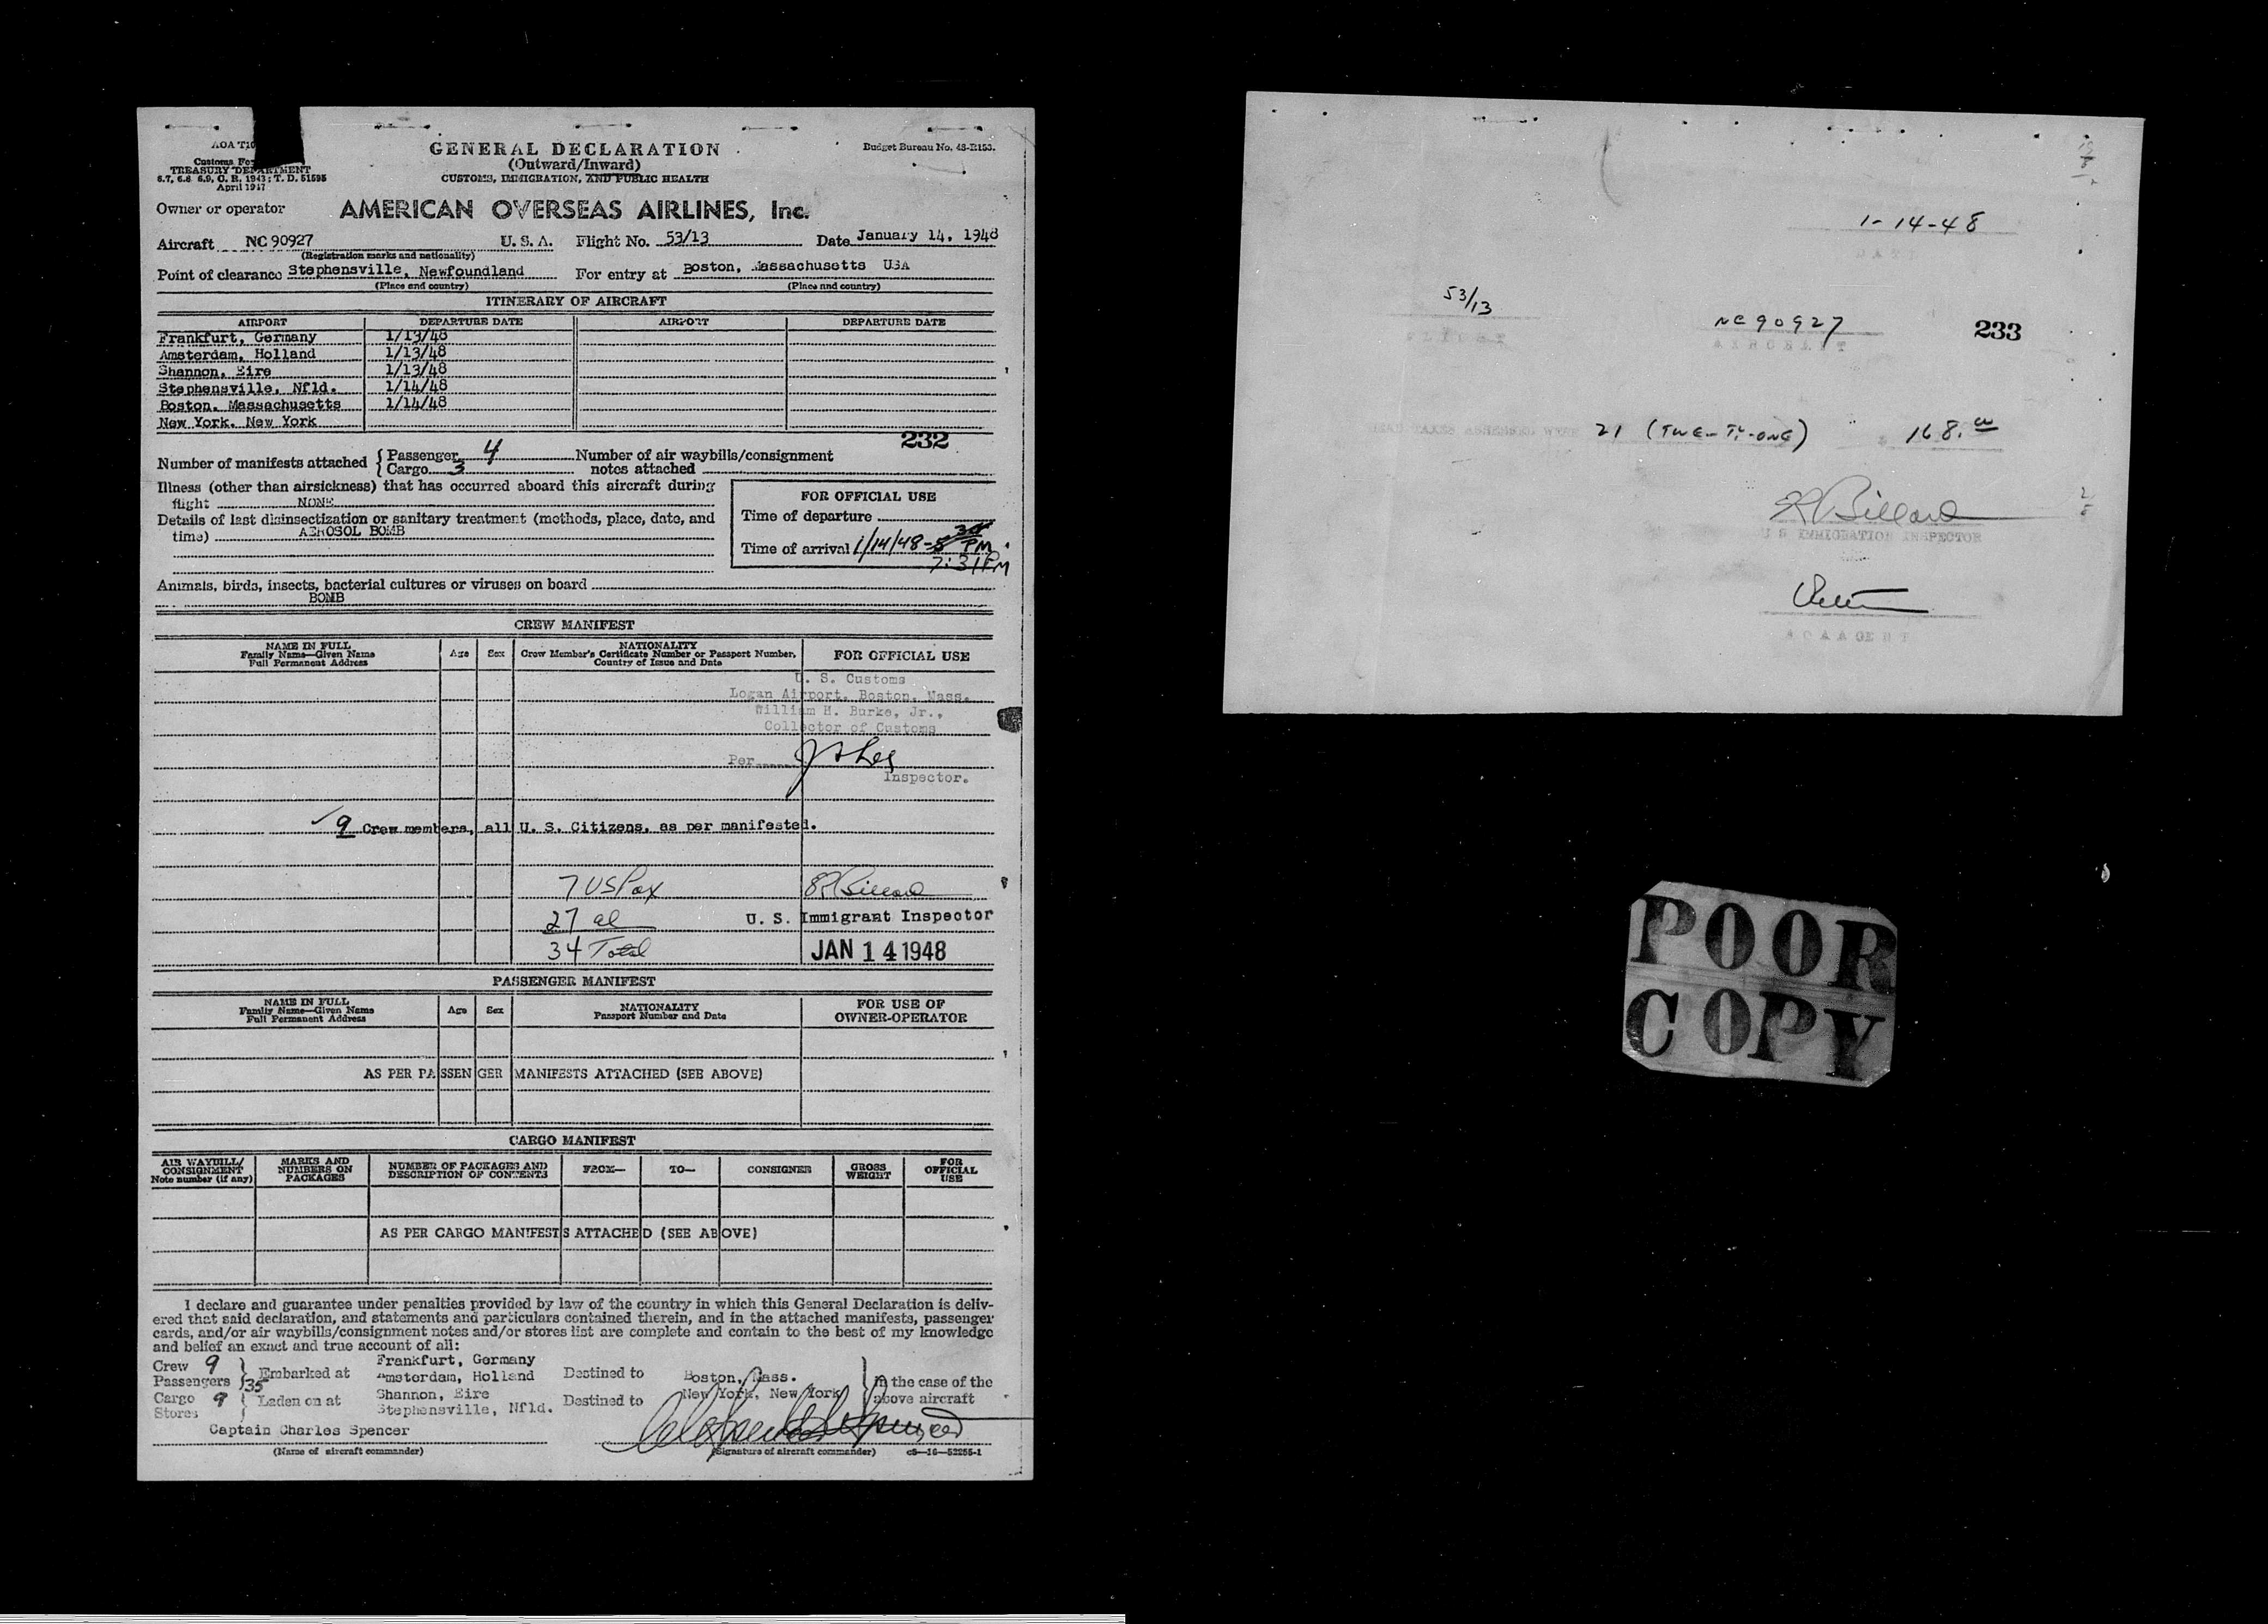 AOA T10
Customs Fo
TREASURY DEPARTMENT
6.7, 6.8 6.9, C. R. 1943; T. D. 51595
April 1947
GENERAL DECLARATION
(Outward/Inward)
CUSTOMS, IMMIGRATION, AND PUBLIC HEALTH
Budget Bureau No. 48-R153.
Owner or operator AMERICAN OVERSEAS AIRLINES, Inc.
Aircraft NC 90927 U. S. A. Flight No. 53/13 Date January 14, 1948
(Registration marks and nationality)
Point of clearance Stephensville, Newfoundland For entry at Boston, Massachusetts USA
(Place and country) (Place and country)
ITINERARY OF AIRCRAFT
AIRPORT DEPARTURE DATE AIRPORT DEPARTURE DATE
Frankfurt, Germany 1/13/48
Amsterdam, Holland 1/13/48
Shannon, Eire 1/13/48
Stephensville, Nfld. 1/14/48
Boston, Massachusetts 1/14/48
New York, New York
232
Number of manifests attached { Passenger 4 Number of air waybills/consignment
{ Cargo 3 notes attached
Illness (other than airsickness) that has occurred aboard this aircraft during
flight NONE
Details of last disinsectization or sanitary treatment (methods, place, date, and
time) AEROSOL BOMB
FOR OFFICIAL USE
Time of departure
Time of arrival 1/14/48 - 5 30 PM
7:31 PM
Animals, birds, insects, bacterial cultures or viruses on board
BOMB
CREW MANIFEST
NAME IN FULL
Family Name—Given Name
Full Permanent Address
Age
Sex
NATIONALITY
Crew Member's Certificate Number or Passport Number,
Country of Issue and Date
FOR OFFICIAL USE
U. S. Customs
Logan Airport, Boston, Mass.
William H. Burke, Jr.,
Collector of Customs
Per
Inspector.
9 Crew members, all U. S. Citizens, as per manifested.
7 US Pax
27 al
U. S. Immigrant Inspector
34 Total
JAN 14 1948
PASSENGER MANIFEST
NAME IN FULL
Family Name—Given Name
Full Permanent Address
Age
Sex
NATIONALITY
Passport Number and Date
FOR USE OF
OWNER-OPERATOR
AS PER PASSENGER MANIFESTS ATTACHED (SEE ABOVE)
CARGO MANIFEST
AIR WAYBILL/
CONSIGNMENT
Note number (if any)
MARKS AND
NUMBERS ON
PACKAGES
NUMBER OF PACKAGES AND
DESCRIPTION OF CONTENTS
FROM—
TO—
CONSIGNER
GROSS
WEIGHT
FOR
OFFICIAL
USE
AS PER CARGO MANIFESTS ATTACHED (SEE ABOVE)
I declare and guarantee under penalties provided by law of the country in which this General Declaration is deliv-
ered that said declaration, and statements and particulars contained therein, and in the attached manifests, passenger
cards, and/or air waybills/consignment notes and/or stores list are complete and contain to the best of my knowledge
and belief an exact and true account of all:
Crew 9
Passengers 35
Cargo 9
Stores
Embarked at
Laden on at
Frankfurt, Germany
Amsterdam, Holland
Shannon, Eire
Stephensville, Nfld.
Destined to Boston, Mass.
Destined to New York, New York
in the case of the
above aircraft
Captain Charles Spencer
(Name of aircraft commander) (Signature of aircraft commander) c5—16—52255-1
1-14-48
DATE
53/13
FLIGHT
NC90927
AIRCRAFT
233
HEAD TAXES ASSESSED WERE 21 (TWENTY-ONE) 168.00
R Billard
U S IMMIGRATION INSPECTOR
AOA AGENT
POOR
COPY